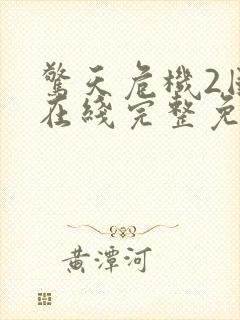 驚天危機2
在綫完整免
黃潭河